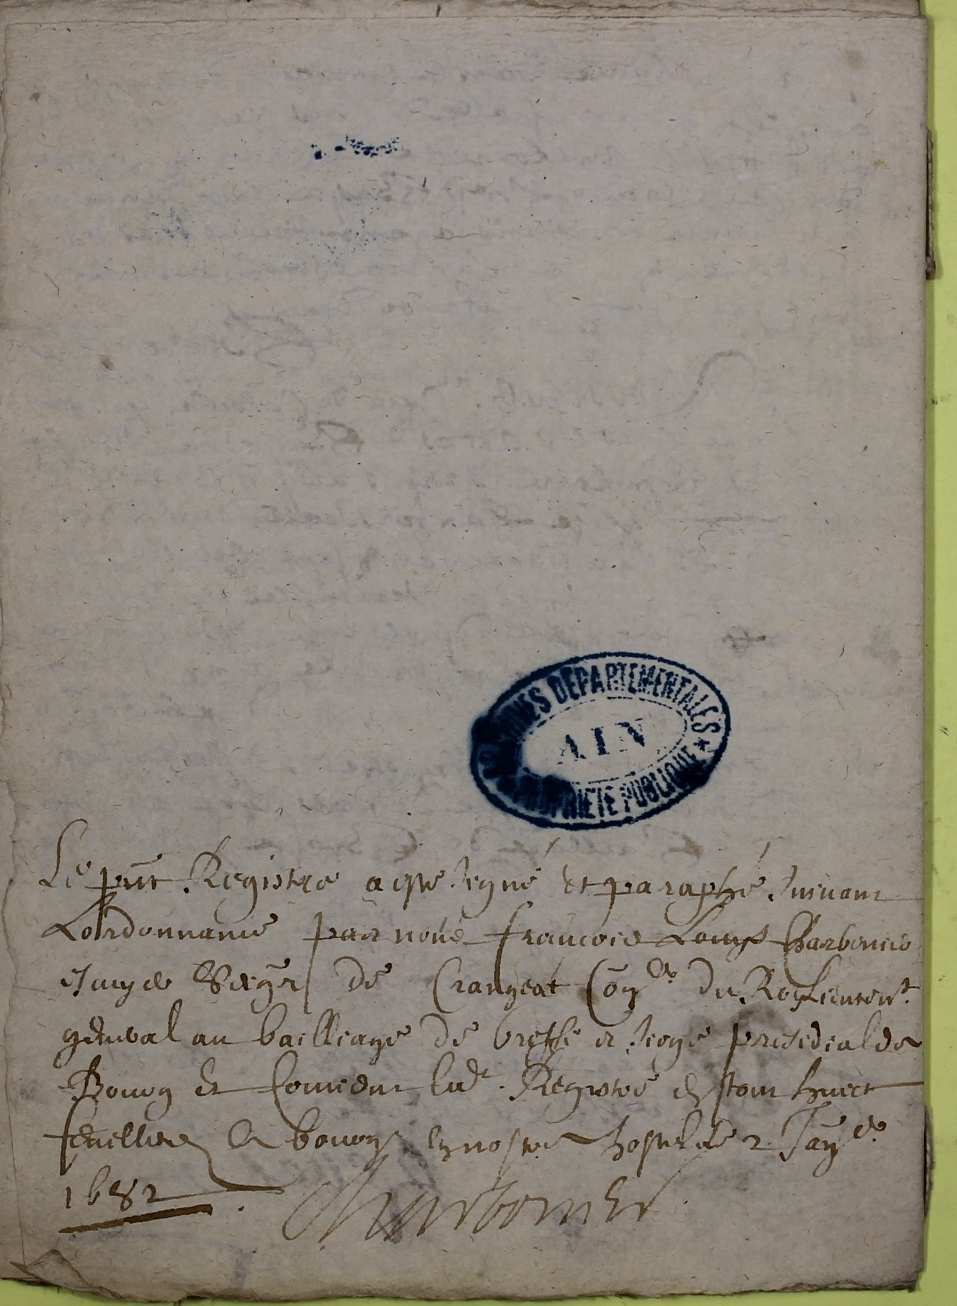 ARCHIVES DEPARTEMENTALES
AIN
PROPRIETE PUBLIQUE
Le pnt Registre a este signe et paraphé suivant
Lordonnance par nous francois Louys Charbonnier
escuyer Seigr de Crangeat Con.er du Roy Lieuten.t
general au bailliage de bresse et siege presidial de
Bourg et Contient led. Registre en tout huict
feuilliets a bourg en nostre hostel le 2 Janv.er
1682
Charbonnier